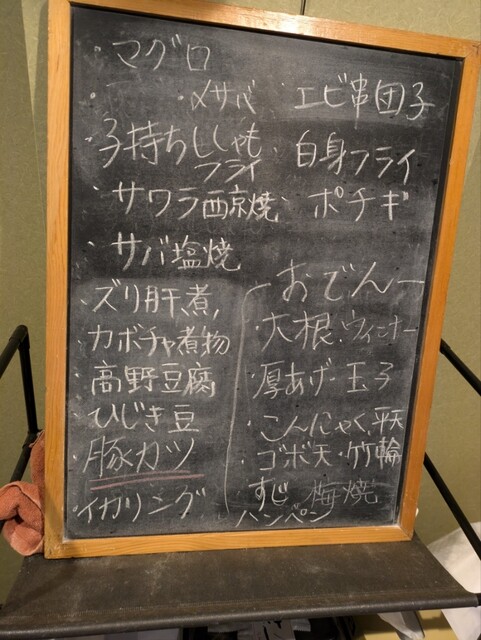 ・マグロ
・メサバ ・エビ串団子
・子持ちししゃもフライ ・白身フライ
・サワラ西京焼 ・ポテギ
・サバ塩焼
・ズリ肝煮
・カボチャ煮物
・高野豆腐
・ひじき豆
・豚カツ
・イカリング
おでん
・大根・ウィンナー
・厚あげ・玉子
・こんにゃく・平天
・ゴボ天・竹輪
・すじ 梅焼
ハンペン